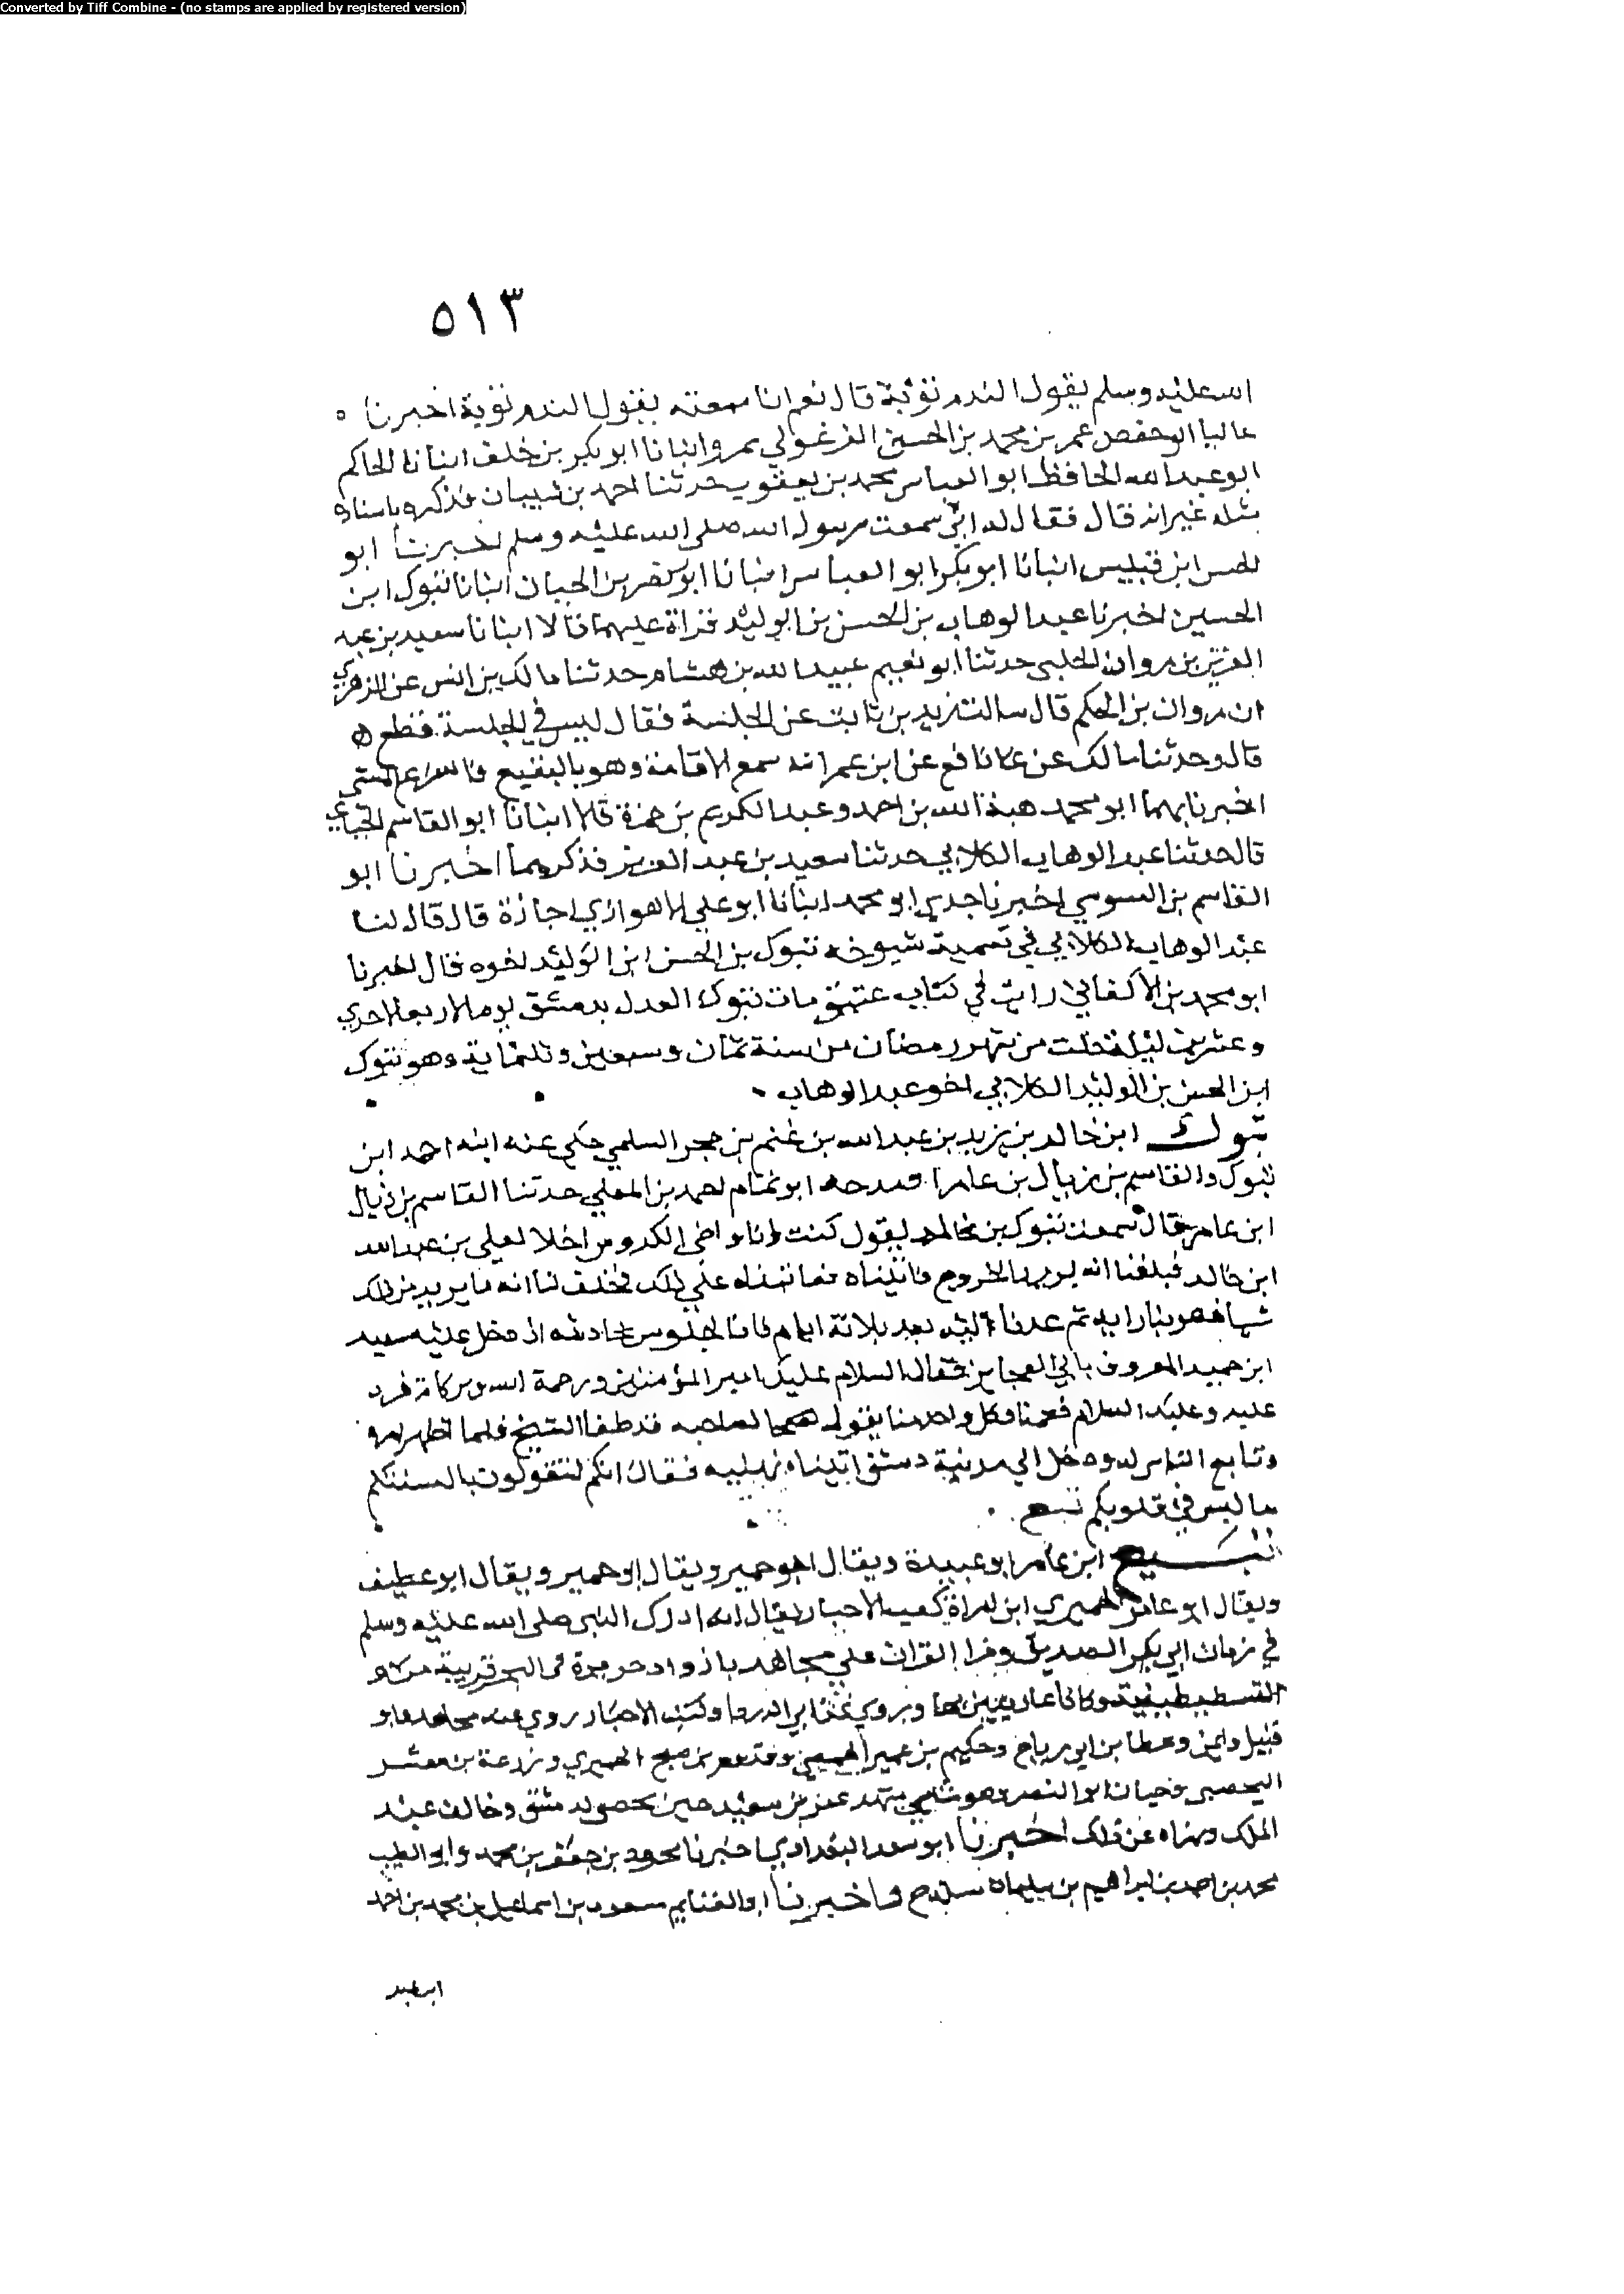 Converted by Tiff Combine - (no stamps are applied by registered version)
٥١٣
الله عليه وسلم يقول الندم توبة قال نعم انا سمعته يقول الندم توبة اخبرنا ه
عاليا ابو حفص عمر بن محمد بن الحسين الفرغولي بمرو انبانا ابو بكر بن خلف انبانا الحاكم
ابو عبد الله الحافظ ابو العباس محمد بن يعقوب حدثنا احمد بن شيبان فذكره باسناده
مثله غير انه قال فقال له ابي سمعت رسول الله صلى الله عليه وسلم اخبرنا ابو
الحسن ابن قبيس انبانا ابو بكر ابو العباس انبانا ابو نصر بن الجبان انبانا تبوك ابن
الحسين اخبرنا عبد الوهاب بن الحسن بن الوليد قراة عليهما قالا انبانا سعيد بن عبد
العزيز بن مروان الحلبي حدثنا ابو نعيم عبيد الله بن هشام حدثنا مالك بن انس عن الزهري
ان مروان بن الحكم قال سالت زيد بن ثابت عن الخلسة فقال ليس في الخلسة قطع ه
قال وحدثنا مالك عن نافع عن ابن عمر انه سمع الاقامة وهو بالبقيع فاسرع المشي
اخبرنا بهما ابو محمد هبة الله بن احمد وعبد الكريم بن حمزة قالا انبانا ابو القاسم الحنايي
قال حدثنا عبد الوهاب الكلابي حدثنا سعيد بن عبد العزيز فذكرهما اخبرنا ابو
القاسم بن السوسي اخبرنا جدي ابو محمد انبانا ابو علي الاهوازي اجازة قال قال لنا
عبد الوهاب الكلابي في تسمية شيوخه تبوك بن الحسن ابن الوليد اخوه قال اخبرنا
ابو محمد بن الاكفاني رايت في كتاب عتيق مات تبوك العدل بدمشق يوم الاربعا لاحدي
وعشرين ليلة خلت من شهر رمضان من سنة ثمان وسبعين وثلثماية وهو تبوك
ابن الحسن بن الوليد الكلابي اخو عبد الوهاب
تبوك ابن خالد بن يزيد بن عبد الله بن غنم بن حجر السلمي حكى عنه ابنه احمد ابن
تبوك والقاسم بن زيال بن عامر قدحه ابو تمام احمد بن المعلي حدثنا القاسم بن زيال
ابن عامر قال سمعت تبوك بن خالد يقول كنت انا واخي الكدوس اخلا لعلي بن عبد الله
ابن خالد فبلغنا انه يريد الخروج فاتيناه فعاتبناه علي ذلك فحلف لنا انه ما يريد من ذلك
شيا فصوبنا رايه ثم عدنا اليه بعد ثلاثة ايام فانا لجلوس نحادثه اذ دخل عليه سعيد
ابن حميد المعروف بابي العجايز فقال السلام عليك امير المؤمنين ورحمة الله وبركاته فرد
عليه وعليك السلام فقمنا وكل واحد منا يقول لصاحبه قد طغا الشيخ فلما اظهر امره
وتابع الناس له ودخل الي مدينة دمشق اتيناه فقال انكم لتقولون بالسنتكم
ما ليس في قلوبكم تبيع
تبيع ابن عامر ابو عبيدة ويقال ابو حمير ويقال ابو عطيف
ويقال ابو عامر الحميري ابن امراة كعب الاحبار يقال انه ادرك النبي صلى الله عليه وسلم
في زمان ابي بكر الصديق وقرا القران علي مجاهد بارواد جزيرة في البحر قريبة من
القسطنطينية وكانا غازيين بها وروي عن ابي الدردا وكعب الاحبار روي عنه مجاهد وابو
قبيل وعطا بن ابي رباح وحكيم بن عمير بن صبح الحميري وزرعة بن معشر
اليحصبي وحيان ابو النضر وهو شامي شهد عمرو بن سعيد حين دمشق وخالف عبد
الملك ونهاه عن ذلك اخبرنا ابو سعد البغدادي اخبرنا محمود بن جعفر بن محمد وابو الطيب
محمد بن احمد بن ابراهيم بن سليمان واخبرنا ابو الغنايم مسعود بن اسماعيل بن محمد بن احمد